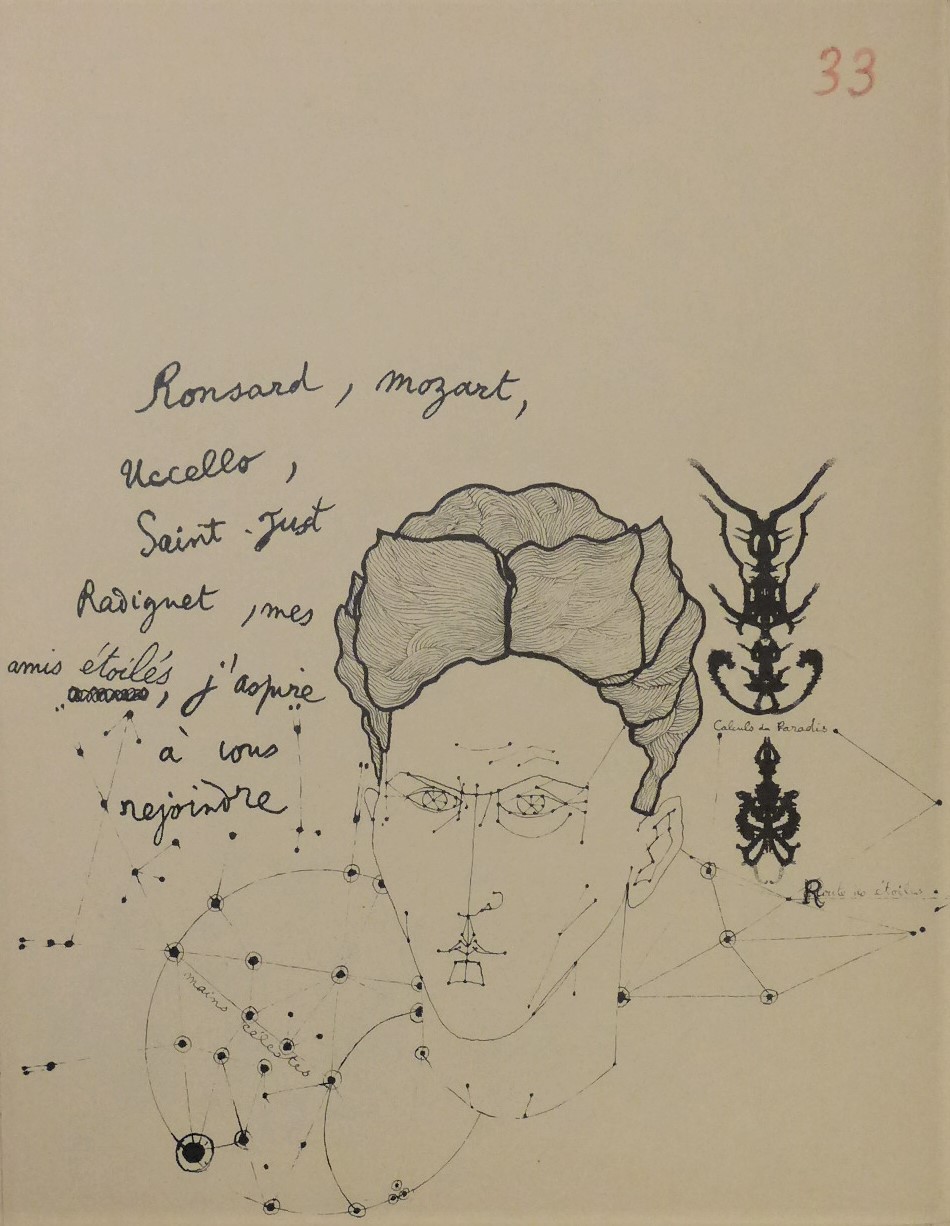 33
Ronsard, Mozart,
Uccello,
Saint-Just
Radiguet, mes
amis étoilés
, j'aspire
à vous
rejoindre
Calculs du Paradis
Route des étoiles
mains célestes